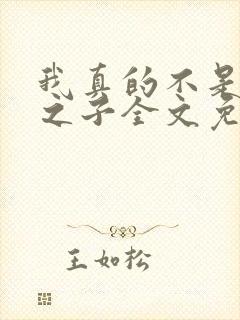 我真的不是
之子全文免
王如松